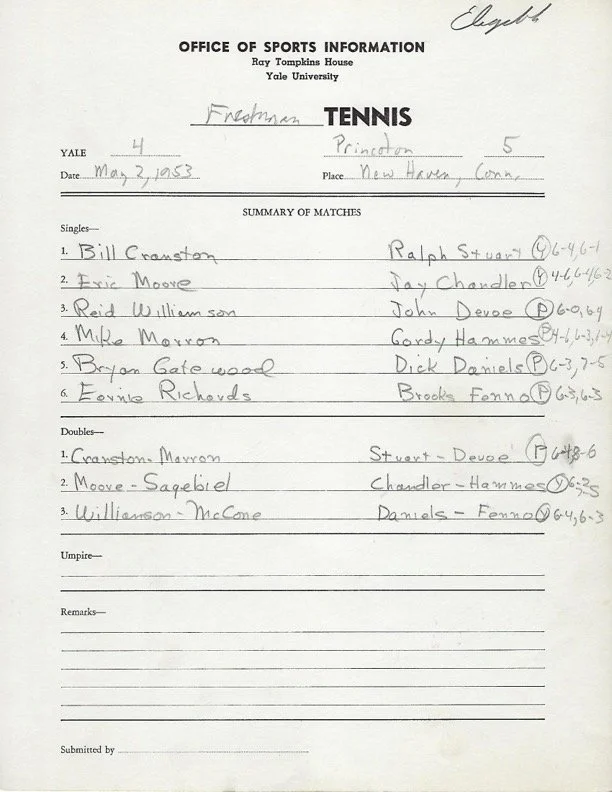 OFFICE OF SPORTS INFORMATION
Ray Tompkins House
Yale University
Freshman TENNIS
YALE 4 Princeton 5
Date May 2, 1953 Place New Haven, Conn.
SUMMARY OF MATCHES
Singles—
1. Bill Cranston Ralph Stuart Y 6-4, 6-1
2. Eric Moore Jay Chandler Y 4-6, 6-4, 6-2
3. Reid Williamson John Devoe P 6-0, 6-4
4. Mike Marron Gordy Hammes P 4-6, 6-3,
5. Bryan Gatewood Dick Daniels P 6-3, 7-5
6. Ernie Richards Brooks Fenno P 6-3, 6-3
Doubles—
1. Cranston-Marron Stuart-Devoe P
2. Moore-Sagebiel Chandler-Hammes Y 6-2, 7-5
3. Williamson-McCone Daniels-Fenno Y 6-4, 6-3
Umpire—
Remarks—
Submitted by